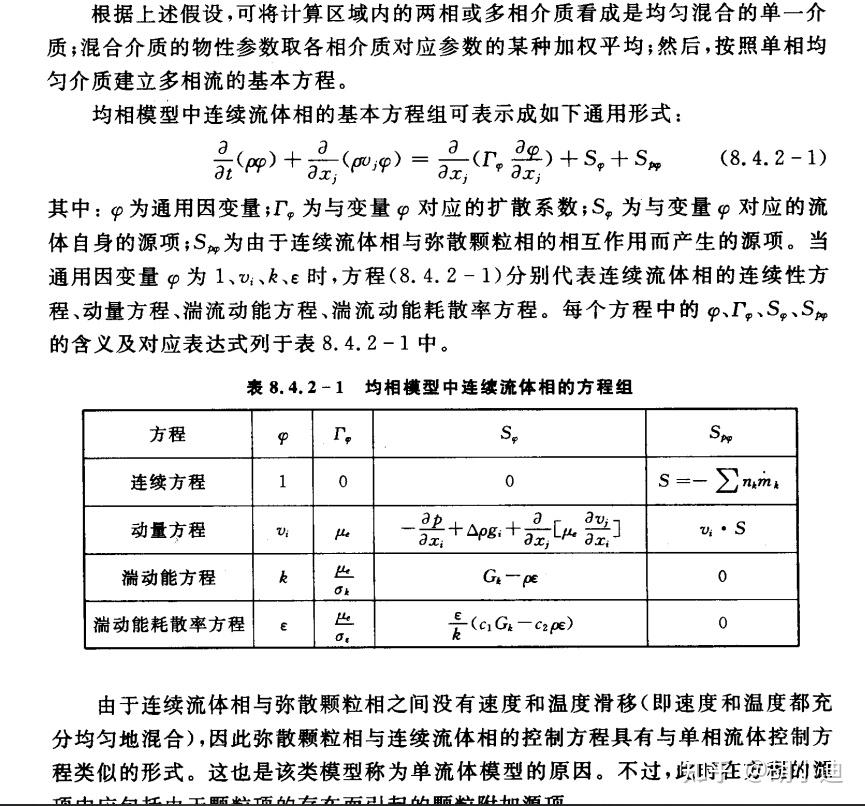 根据上述假设,可将计算区域内的两相或多相介质看成是均匀混合的单一介
质;混合介质的物性参数取各相介质对应参数的某种加权平均;然后,按照单相均
匀介质建立多相流的基本方程。
均相模型中连续流体相的基本方程组可表示成如下通用形式:
∂/∂t(ρφ) + ∂/∂xⱼ(ρvⱼφ) = ∂/∂xⱼ(Γφ ∂φ/∂xⱼ) + Sφ + Spφ (8.4.2-1)
其中: φ为通用因变量;Γφ 为与变量 φ 对应的扩散系数;Sφ 为与变量 φ 对应的流
体自身的源项;Spφ为由于连续流体相与弥散颗粒相的相互作用而产生的源项。当
通用因变量 φ 为 1、vᵢ、k、ε 时,方程(8.4.2-1)分别代表连续流体相的连续性方
程、动量方程、湍流动能方程、湍流动能耗散率方程。每个方程中的 φ、Γφ、Sφ、Spφ
的含义及对应表达式列于表 8.4.2-1 中。
表 8.4.2-1 均相模型中连续流体相的方程组
方程 φ Γφ Sφ Spφ
连续方程 1 0 0 S = -∑nₖṁₖ
动量方程 vᵢ μₑ -∂p/∂xᵢ + Δρgᵢ + ∂/∂xⱼ[μₑ ∂vⱼ/∂xᵢ] vᵢ·S
湍动能方程 k μₑ/σₖ Gₖ-ρε 0
湍动能耗散率方程 ε μₑ/σε ε/k(c₁Gₖ-c₂ρε) 0
由于连续流体相与弥散颗粒相之间没有速度和温度滑移(即速度和温度都充
分均匀地混合),因此弥散颗粒相与连续流体相的控制方程具有与单相流体控制方
程类似的形式。这也是该类模型称为单流体模型的原因。不过,此时在方程的源
项中应包括由于颗粒项的存在而引起的颗粒附加源项
知乎 @胡小迪